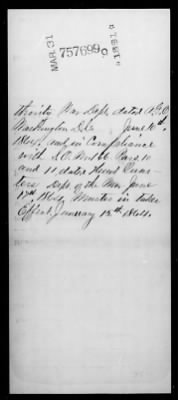 MAR. 31
757699
1891
thority War Dept. dated A.G.O
Washington D.C. June 10th
1864. and in Compliance
with S.O. No 6 Pars. 10
and 11 dated Head Quar-
ters Dept. of the Mo. June
17th 1864. Muster in takes
Effect January 12th 1864.